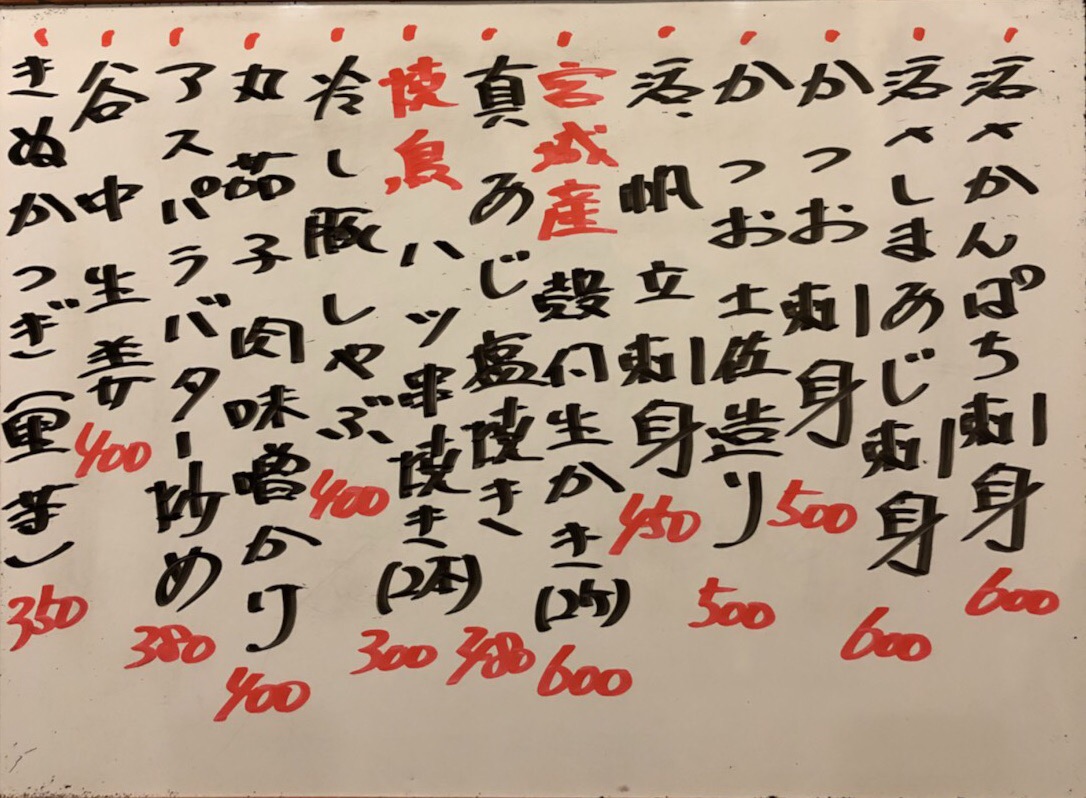 活〆かんぱち刺身 600
活〆しまあじ刺身 600
かつお刺身 500
かつお土佐造り 500
活帆立刺身 450
宮城産 殻付生かき(2ケ) 600
真あじ塩焼き 380
焼鳥 ハツ串焼き(2本) 300
冷し豚しゃぶ 400
丸茄子肉味噌かけ 400
アスパラバター炒め 380
谷中生姜 400
きぬかつぎ(里芋) 350